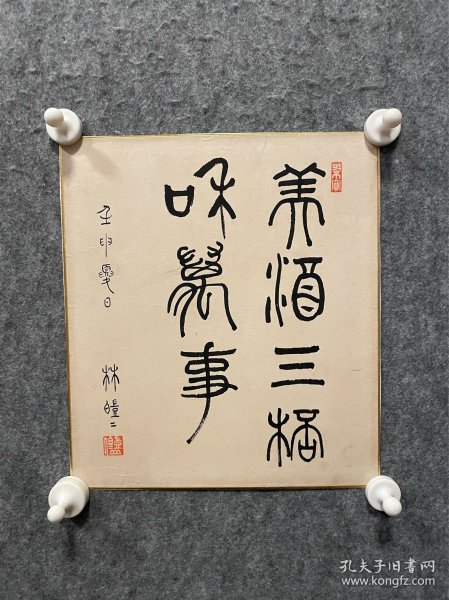 美酒三桮
咊萬事
壬申夏日
林
孔夫子旧书网
www.kongfz.com